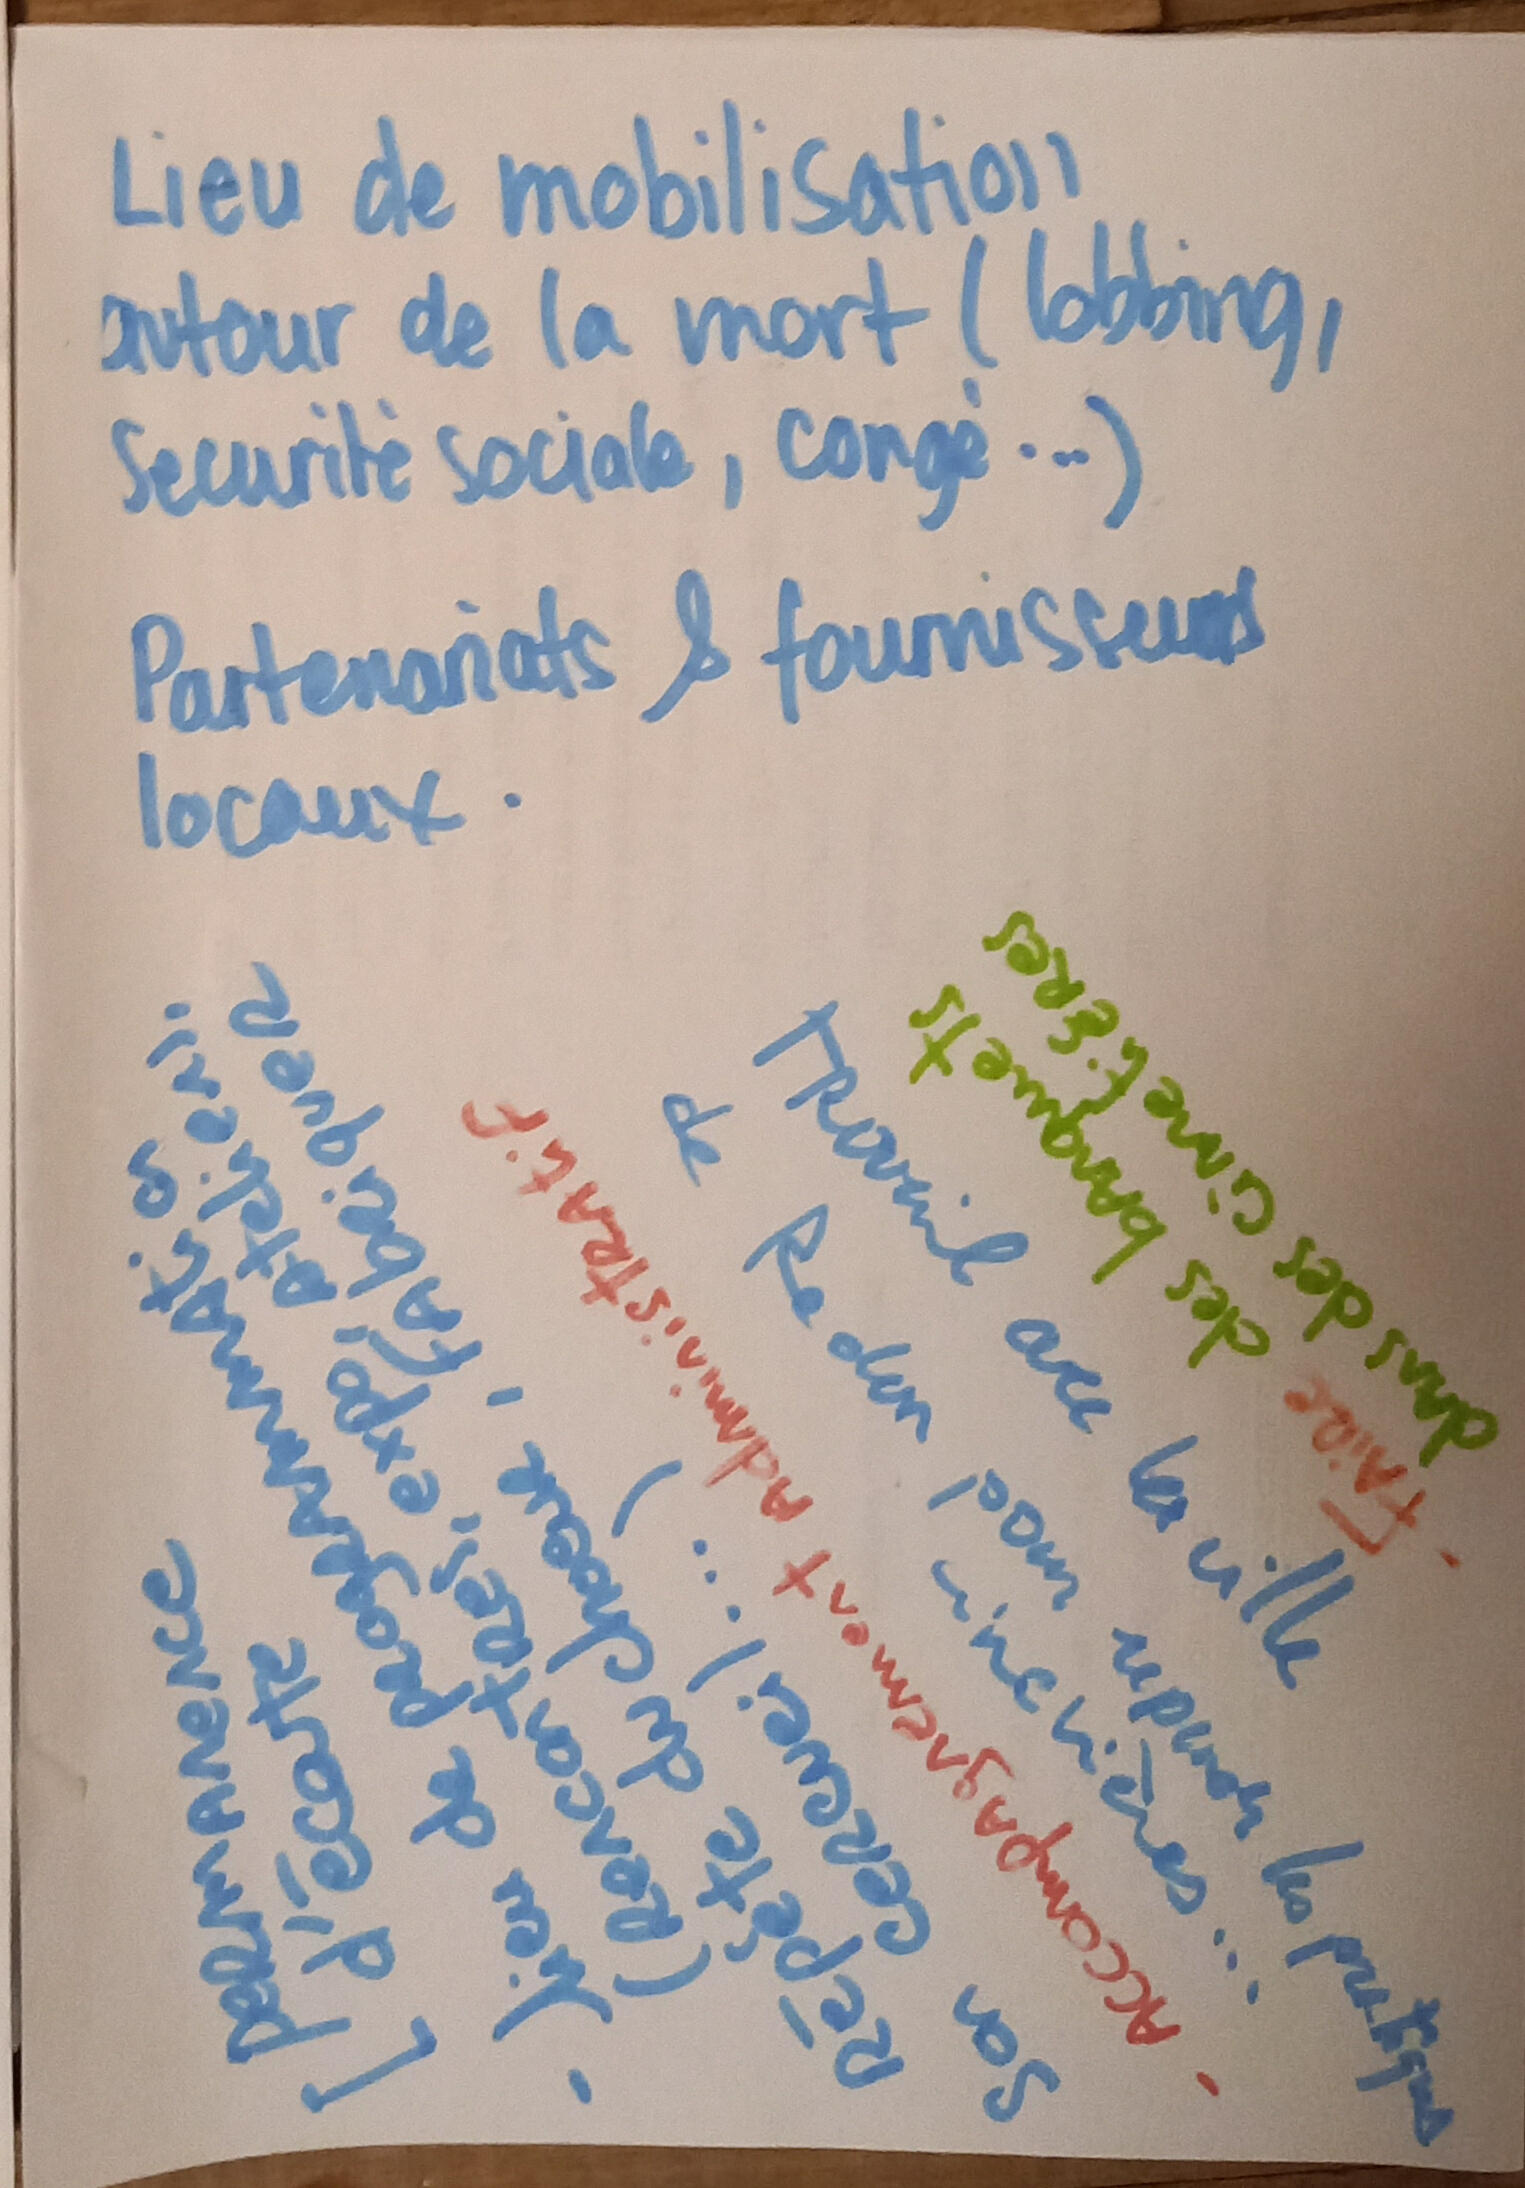 Lieu de mobilisation
autour de la mort (lobbing,
securité sociale, congé...)
Partenariats & fournisseurs
locaux.
Travail avec la ville
de Redon pour repenser les pratiques
- FAIRE des banquets
dans des cimetières
- Accompagnement administratif
- lieu de programmation
(Rencontres, expo, atelier
Répète du chœur, fabriquer
son cercueil...)
[ d'écoute
permanence